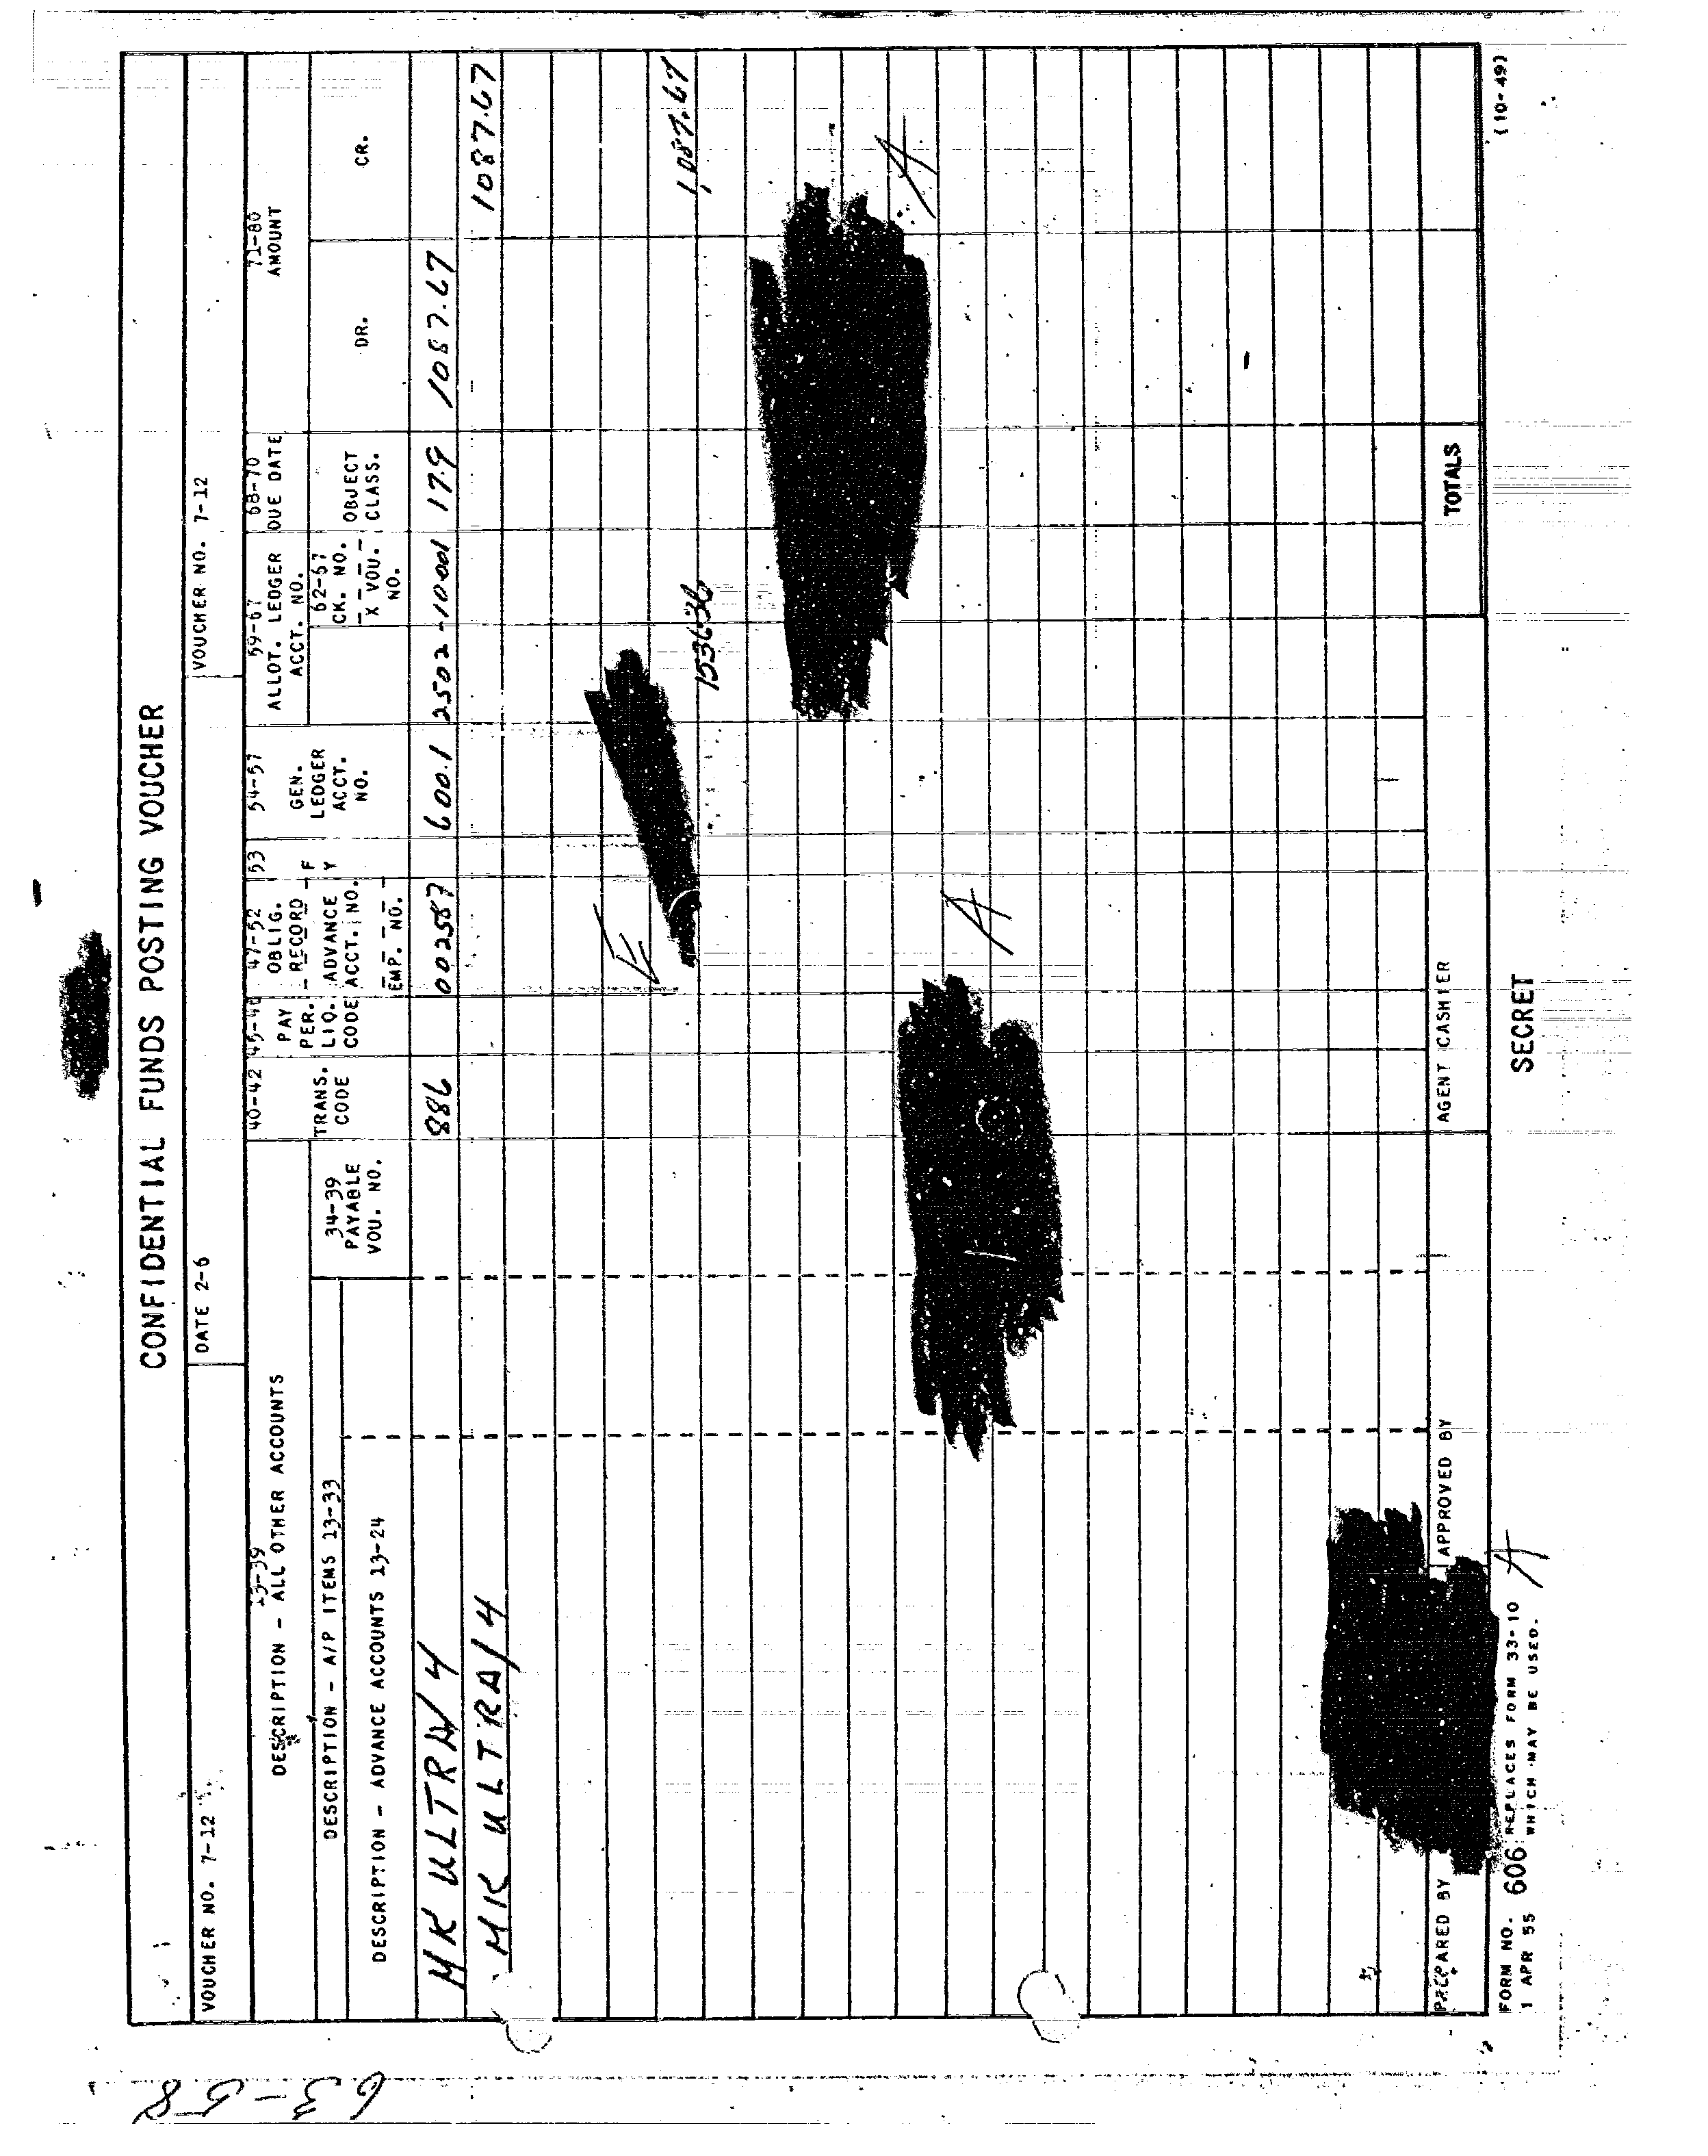 CONFIDENTIAL FUNDS POSTING VOUCHER
VOUCHER NO. 7-12
DATE 2-6
VOUCHER NO. 7-12
13-39
DESCRIPTION - ALL OTHER ACCOUNTS
DESCRIPTION - A/P ITEMS 13-33
DESCRIPTION - ADVANCE ACCOUNTS 13-24
34-39
PAYABLE
VOU. NO.
40-42
TRANS.
CODE
45-46
PAY
PER.
LIQ.
CODE
47-52
OBLIG.
RECORD
ADVANCE
ACCT. NO.
EMP. NO.
53
F
Y
54-57
GEN.
LEDGER
ACCT.
NO.
59-67
ALLOT. LEDGER
ACCT. NO.
62-67
CK. NO.
X VOU.
NO.
68-70
DUE DATE
OBJECT
CLASS.
71-80
AMOUNT
DR.
CR.
MK ULTRA/4 886 002587 600.1 2502-10-001 179 1087.67
MK ULTRA/4 1087.67
153636 1,087.67
A
A
A
PREPARED BY
APPROVED BY
AGENT CASHIER
TOTALS
FORM NO. 606 REPLACES FORM 33-10
1 APR 55 WHICH MAY BE USED.
SECRET
(10-49)
63-58